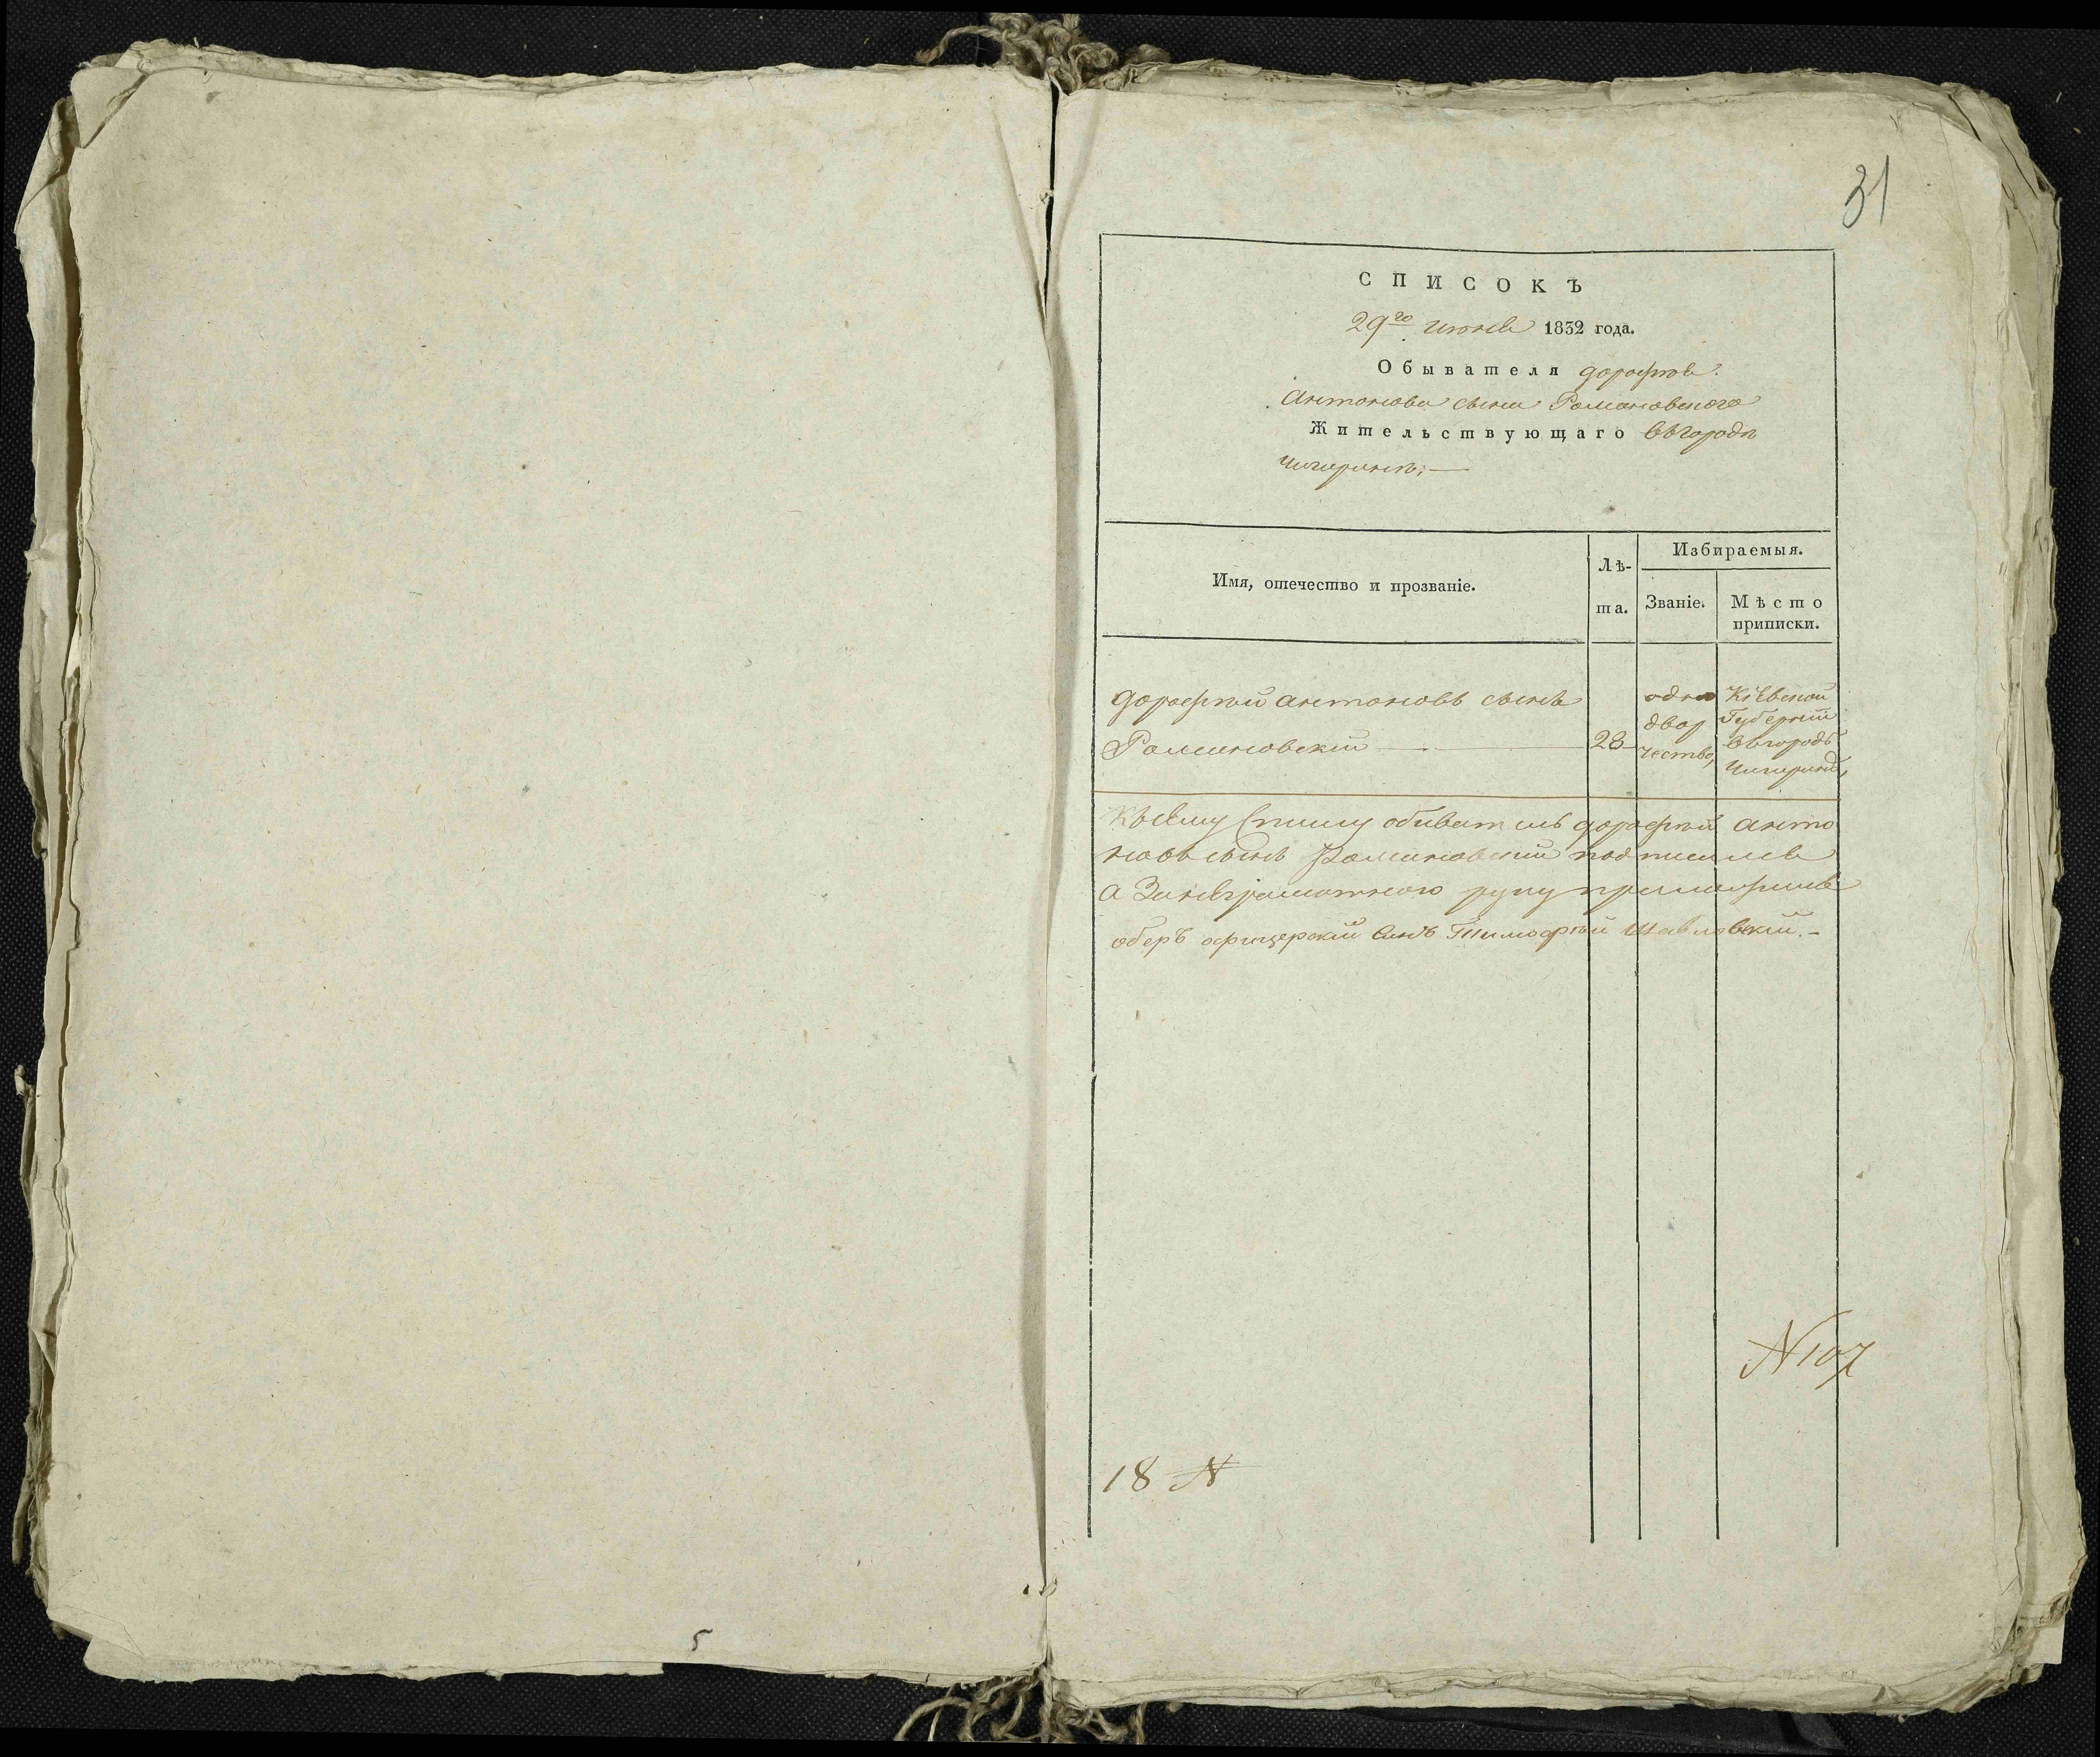 31
СПИСОКЪ
29го июня 1832 года.
Обывателя дорофѣя
Антонова сына Романовского
Жительствующаго въ городѣ
Чигиринѣ;—
Имя, отечество и прозваніе.
Лѣ-
та.
Избираемыя.
Званіе.
Мѣсто
приписки.
дорофѣй антоновъ сынъ
Романовскій
28
одно
двор
чество,
Кіевской
Губерніи
въ городѣ
Чигиринѣ,
Къ сему Списку обиватель дорофѣй анто
новъ сынъ Романовский подписался
а За неграмотного руку приложилъ
оберъ офицерский Синъ Тимофѣй Шавловский.-
N 107
18 N
5